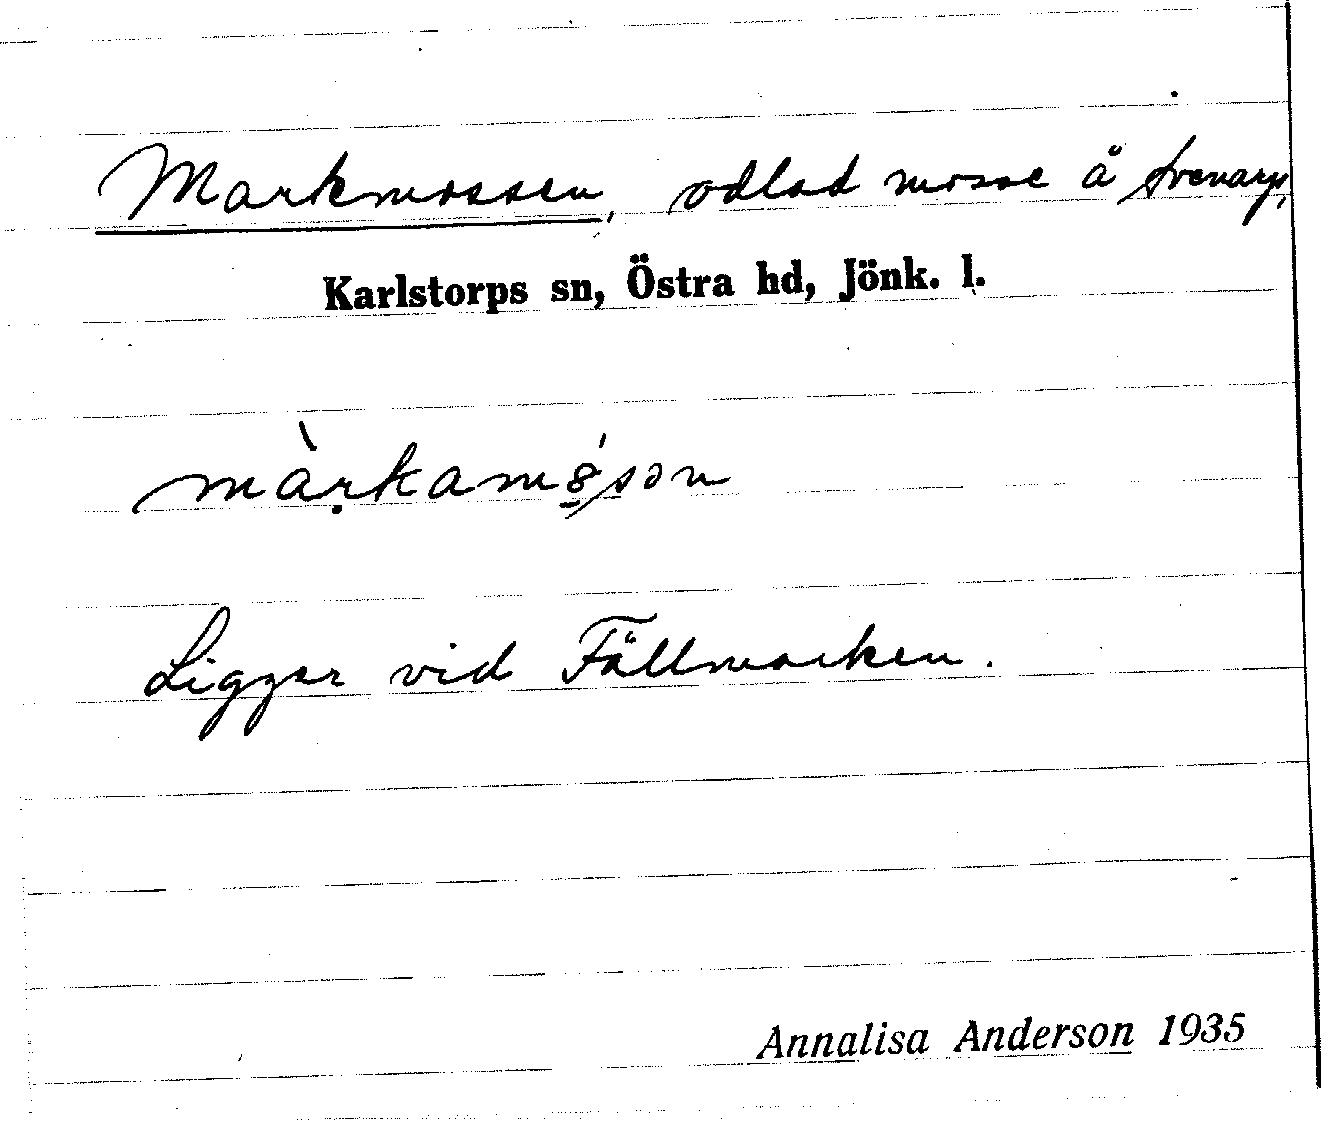 Markmossen, odlad mosse å Svenarp,
Karlstorps sn, Östra hd, Jönk. l.
Ligger vid Fällmarken.
Annalisa Anderson 1935